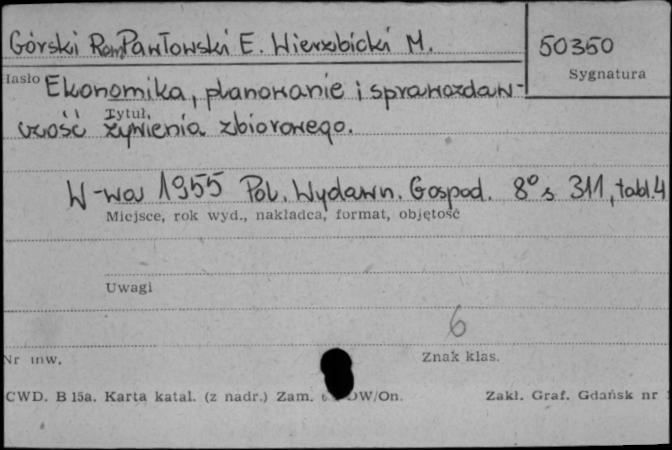 Górski Rom Pawłowski E. Wierzbicki M.
50350
Sygnatura
Hasło Ekonomika, planowanie i sprawozdaw-
Tytuł
czość żywienia zbiorowego.
W-wa 1955 Pol. Wydawn. Gospod. 8° s. 311, tabl. 4
Miejsce, rok wyd., nakładca, format, objętość
Uwagi
6
Nr inw.
Znak klas.
CWD. B 15a. Karta katal. (z nadr.) Zam. OW/On.
Zakł. Graf. Gdańsk nr